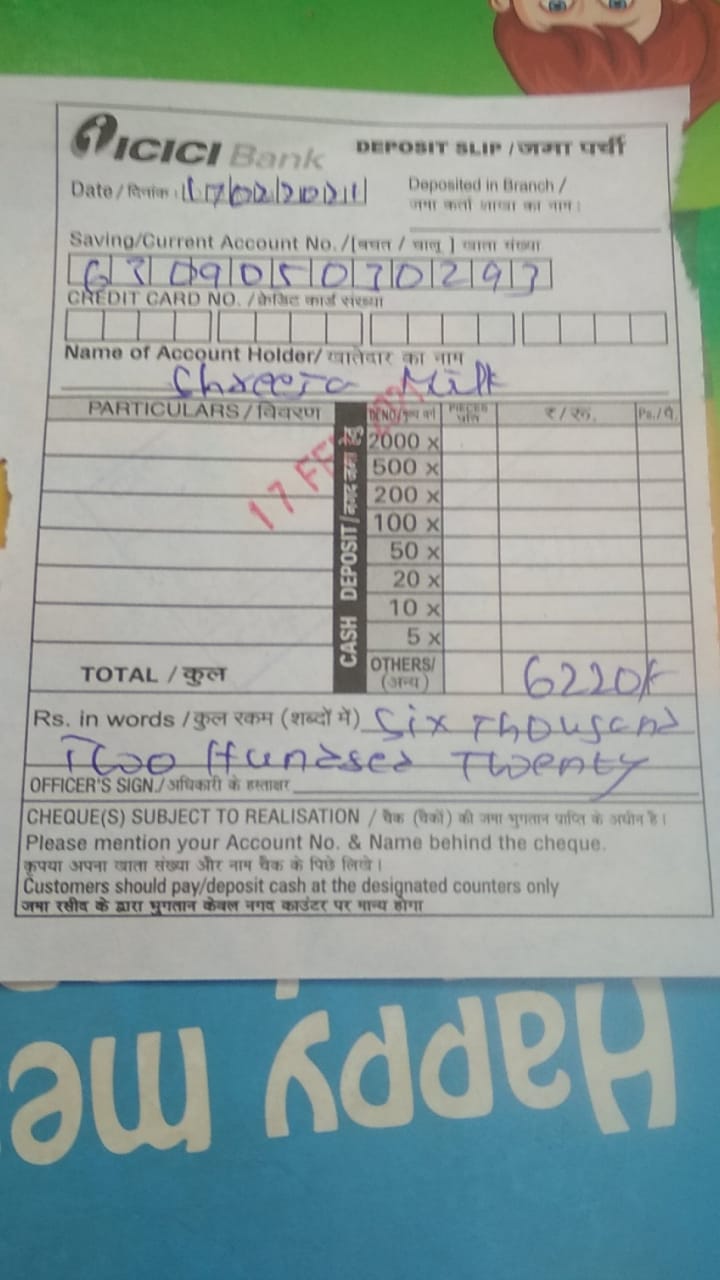 ICICI Bank DEPOSIT SLIP / जमा पर्ची
Date / दिनांक : 17022021 Deposited in Branch /
जमा कर्ता शाखा का नाम :
Saving/Current Account No. /[बचत / चालू ] खाता संख्या
630905030293
CREDIT CARD NO. / क्रेडिट कार्ड संख्या
Name of Account Holder/ खातेदार का नाम
Milk
PARTICULARS / विवरण CASH DEPOSIT / नगद जमा हेतु DENO/मूल्य वर्ग PIECES ₹ / रू. Ps./पै.
2000 x
500 x
200 x
100 x
50 x
20 x
10 x
5 x
17 FEB 2021
TOTAL / कुल OTHERS/ (अन्य) 6220/-
Rs. in words / कुल रकम (शब्दों में) Six Thousand
Two Hundred Twenty
OFFICER'S SIGN./ अधिकारी के हस्ताक्षर
CHEQUE(S) SUBJECT TO REALISATION / चैक (चैकों) की जमा भुगतान प्राप्ति के अधीन है।
Please mention your Account No. & Name behind the cheque.
कृपया अपना खाता संख्या और नाम चैक के पिछे लिखे।
Customers should pay/deposit cash at the designated counters only
जमा रसीद के द्वारा भुगतान केवल नगद काउंटर पर मान्य होगा
Happy me